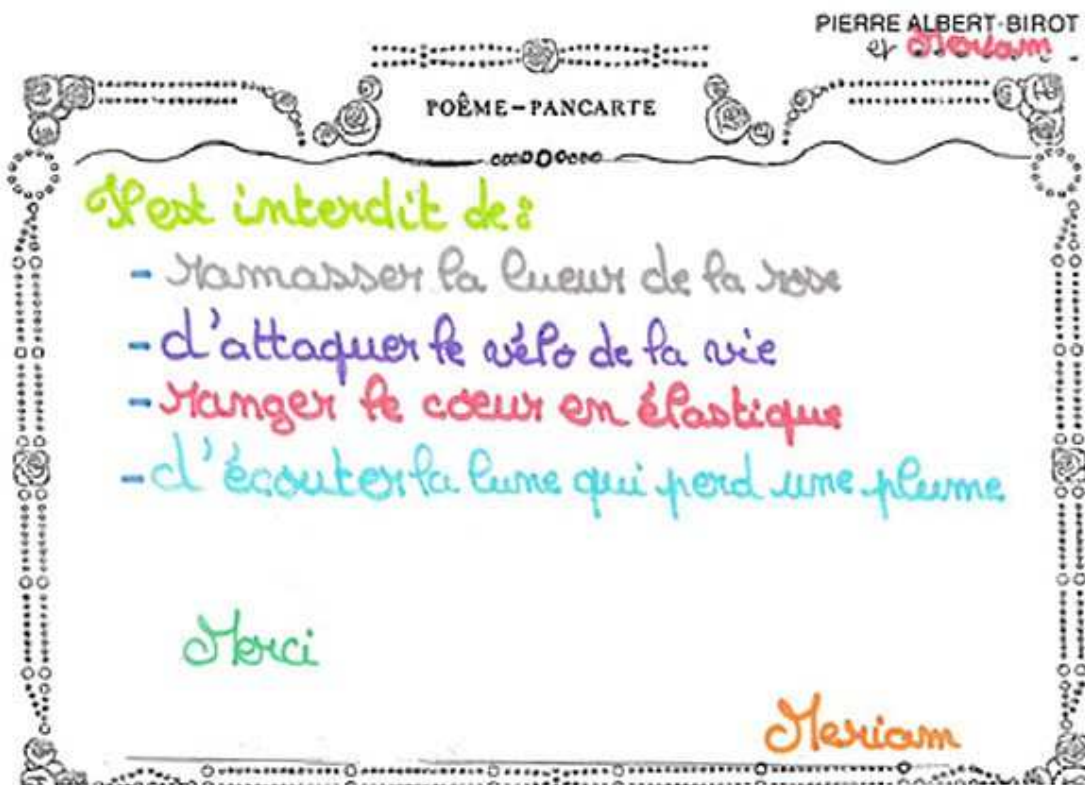 PIERRE ALBERT-BIROT
et Meriam
POÊME-PANCARTE
Il est interdit de :
- ramasser la lueur de la rose
- d'attaquer le vélo de la vie
- ranger le coeur en élastique
- d'écouter la lune qui perd une plume
Merci
Meriam